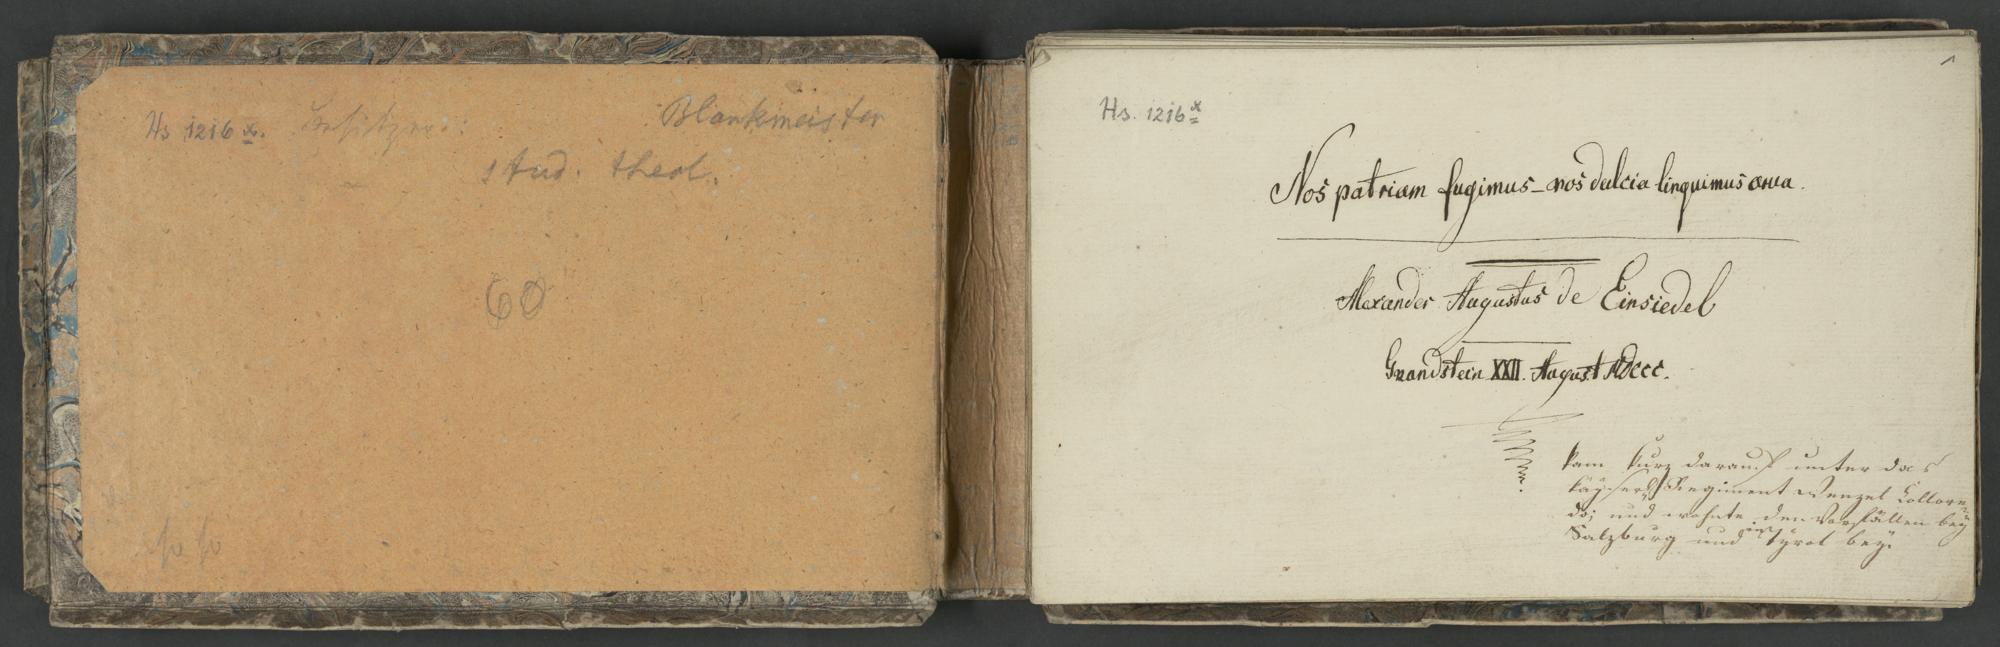 Hs 1216 x. Besitzer: Blankmeister
stud. theol.
60
1
Hs. 1216 x
Nos patriam fugimus – nos dulcia linquimus arva.
Alexander Augustus de Einsiedel
Grandstein XXII. August MDCCC.
kam kurz darauf unter das
kayserl. Regiment Wenzel Collore-
do; und wohnte den Vorfällen bey
Salzburg und in Tyrol bey.